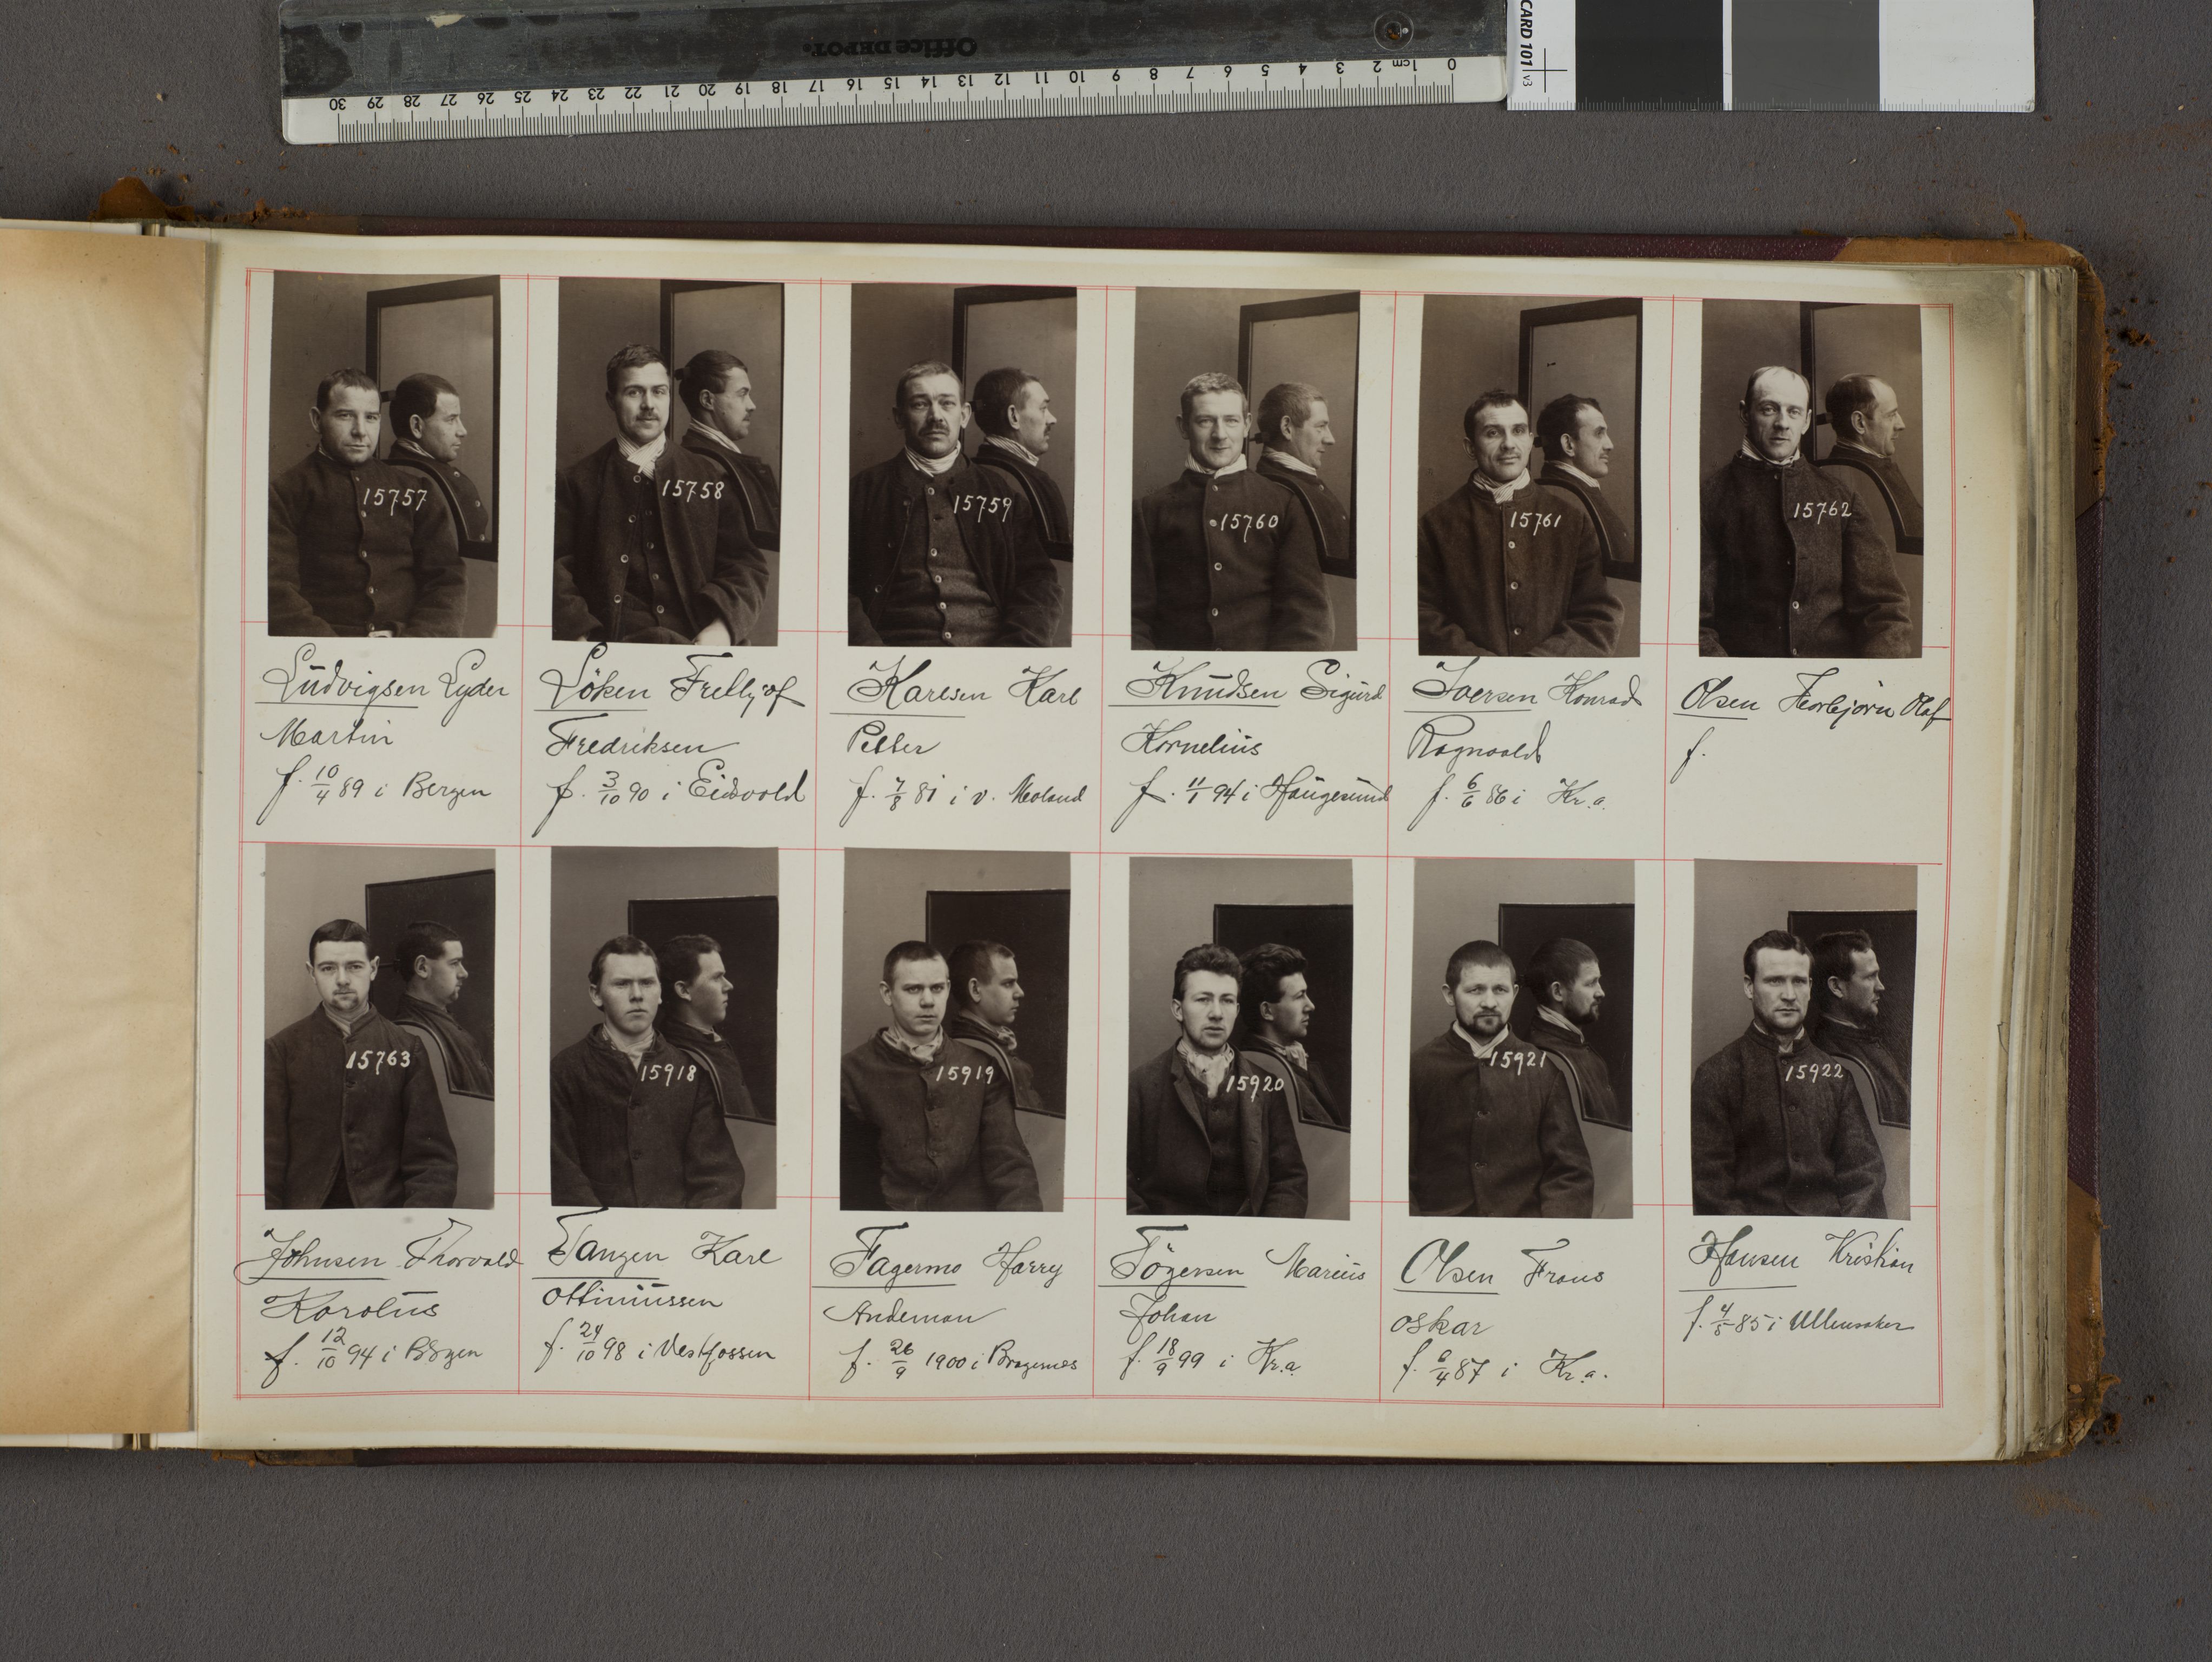 Office DEPOT.
0 1cm 2 3 4 5 6 7 8 9 10 11 12 13 14 15 16 17 18 19 20 21 22 23 24 25 26 27 28 29 30
CARD 101 v3
15757
15758
15759
15760
15761
15762
Lūdvigsen Lyder
Martin
f. 10/4 89 i Bergen
Löken Fretlyof
Fredriksen
f. 3/10 90 i Eidsvold
Karlsen Karl
Petter
f. 7/8 81 i v. Moland
Knūdsen Sigurd
Kornelius
f. 11/1 94 i Haugesund
Iversen Konrad
Ragnvald
f. 6/6 86 i Kr.a.
Olsen Torbjörn Olaf
f.
15763
15918
15919
15920
15921
15922
Johnsen Thorvald
Karolus
f. 12/10 94 i Bergen
Tangen Karl
Ottinussen
f. 24/10 98 i Vestfossen
Fagermo Harry
Andeman
f. 26/9 1900 i Bragernes
Tögersen Marius
Johan
f. 18/9 99 i Kr.a.
Olsen Frans
Oskar
f. 6/4 87 i Kr.a.
Hansen Kristian
f. 4/5 85 i Ullensaker